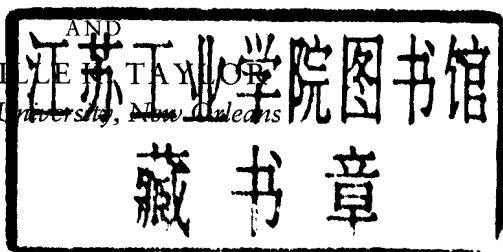 AND
TAYLOR
University, New Orleans
江苏工业学院图书馆
藏书章